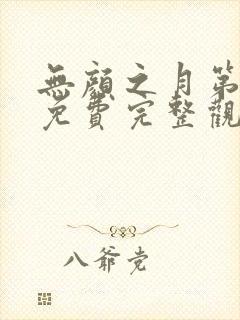 無顏之月第
免費完整觀
八爺党